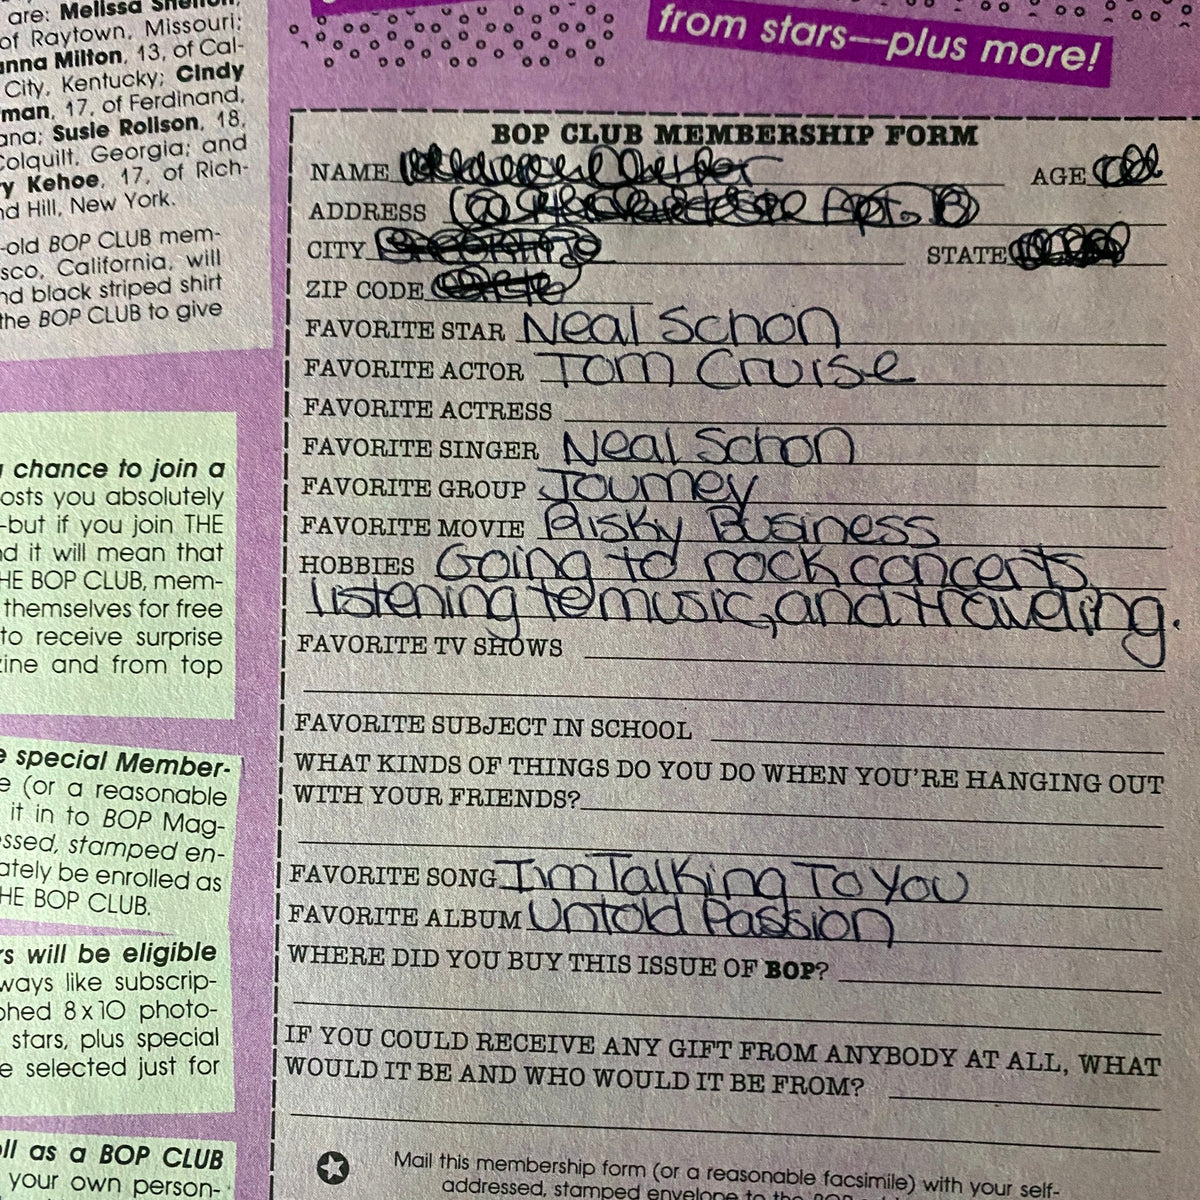 are: Melissa Shelton,
of Raytown, Missouri;
anna Milton, 13, of Cal-
City, Kentucky; Cindy
man, 17, of Ferdinand,
ana; Susie Rollson, 18,
Colquilt, Georgia; and
y Kehoe, 17, of Rich-
nd Hill, New York.
-old BOP CLUB mem-
sco, California, will
nd black striped shirt
the BOP CLUB to give
chance to join a
osts you absolutely
-but if you join THE
nd it will mean that
HE BOP CLUB, mem-
themselves for free
to receive surprise
zine and from top
e special Member-
e (or a reasonable
it in to BOP Mag-
essed, stamped en-
ately be enrolled as
HE BOP CLUB.
rs will be eligible
ways like subscrip-
phed 8x10 photo-
stars, plus special
e selected just for
oll as a BOP CLUB
your own person-
from stars—plus more!
BOP CLUB MEMBERSHIP FORM
NAME AGE
ADDRESS Apt. B
CITY STATE
ZIP CODE
FAVORITE STAR Neal Schon
FAVORITE ACTOR Tom Cruise
FAVORITE ACTRESS
FAVORITE SINGER Neal Schon
FAVORITE GROUP Journey
FAVORITE MOVIE Risky Business
HOBBIES Going to rock concerts,
listening to music, and traveling.
FAVORITE TV SHOWS
FAVORITE SUBJECT IN SCHOOL
WHAT KINDS OF THINGS DO YOU DO WHEN YOU'RE HANGING OUT
WITH YOUR FRIENDS?
FAVORITE SONG I'm Talking To You
FAVORITE ALBUM Untold Passion
WHERE DID YOU BUY THIS ISSUE OF BOP?
IF YOU COULD RECEIVE ANY GIFT FROM ANYBODY AT ALL, WHAT
WOULD IT BE AND WHO WOULD IT BE FROM?
Mail this membership form (or a reasonable facsimile) with your self-
addressed, stamped envelope to the BOP